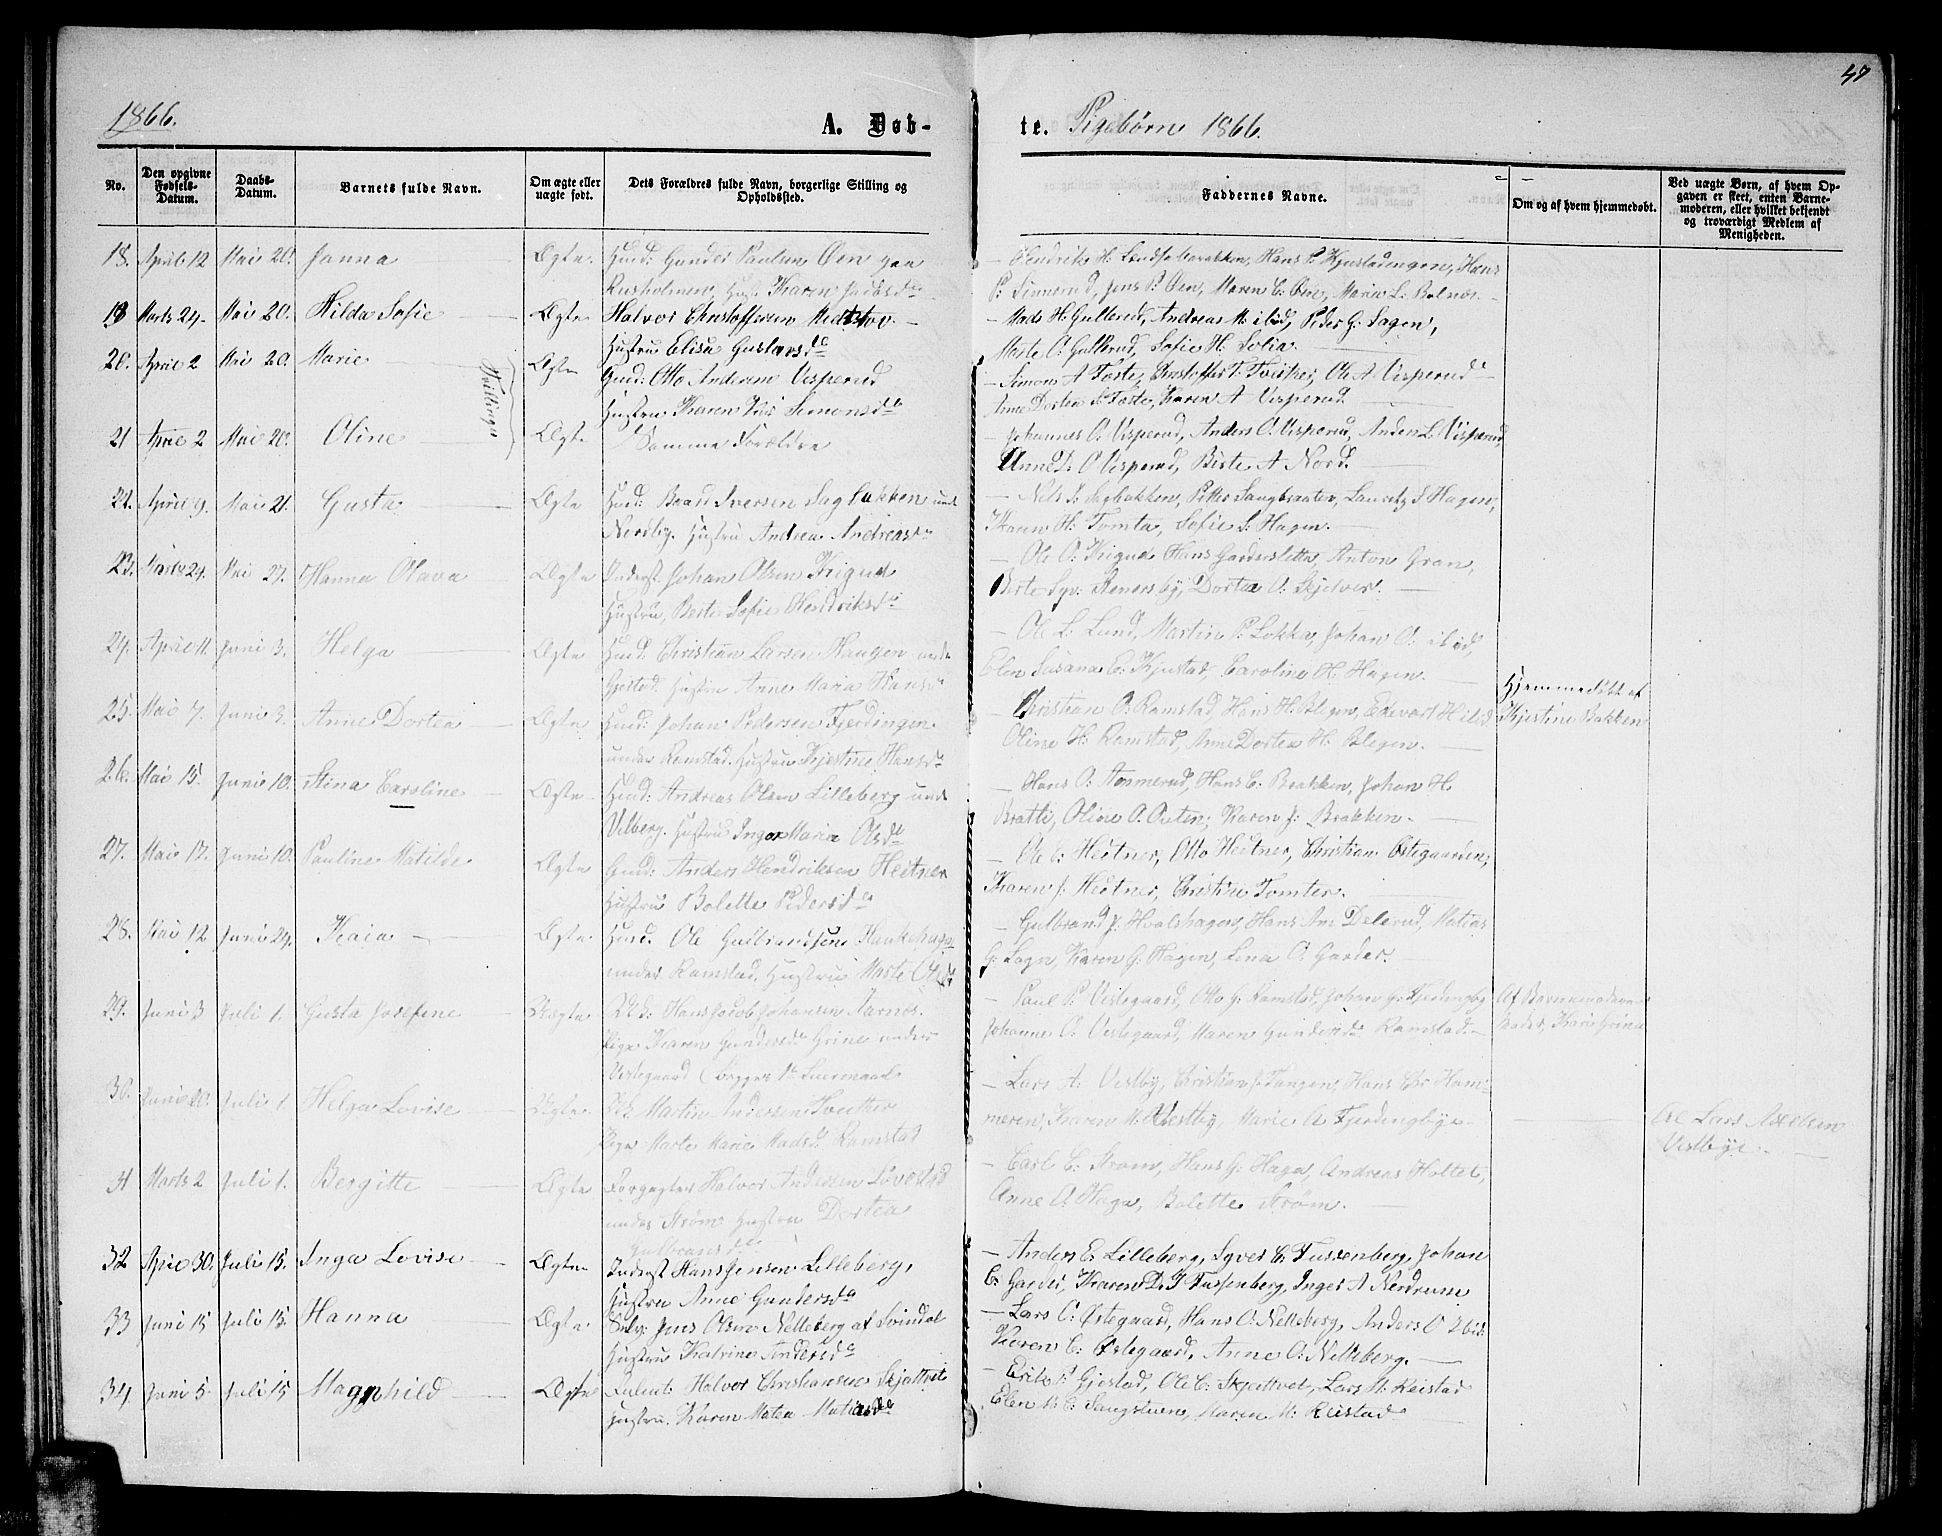 47
1866.
A. Døb-
te. Pigebørn 1866.
No.
Den opgivne Fødsels-Datum.
Daabs-Datum.
Barnets fulde Navn.
Om ægte eller uægte født.
Dets Forældres fulde Navn, borgerlige Stilling og Opholdssted.
Faddernes Navne.
Om og af hvem hjemmedøbt.
Ved uægte Børn, af hvem Opgaven er skeet, enten Barnemoderen, eller hvilket bekjendt og troværdigt Medlem af Menigheden.
18. April 12 Mai 20. Janna Ægte. Husd: Gunder Paulsen Øen paa
Rusholmen, Hust. Karen Jacobsdr
Hans P. Kjustadengen, Hans
P. Sinnerud, Jens P. Øen, Maren C. Øie, Marie L. Bolnæs.
19 Marts 24. Mai 20. Hilda Sofie Ægte Halvor Christoffersen Medskov.
Hustru Elise Gustavsdr
Mads H. Gullerud, Andreas M. ibid, Peder G. Sagen,
Marte O. Gullerud, Sofie H. Solia.
20. April 2 Mai 20. Marie Tvillinger Ægte Gmd: Otto Andersen Visperud
Hustru Karen Simonsdr
Simon A Toste, Christoffer T. Tveither, Ole A. Visperud
Anne Dortea S. Toste, Karen A Visperud.
21 April 2 Mai 20. Oline Ægte Samme Forældre
Johannes O. Visperud, Anders O. Visperud, Anders L. Visperud,
Anne L. O Visperud, Birte A Nord.
22. April 9. Mai 21. Gusta Ægte Husd: Baard Iversen Sagbakken und
Nordby. Hustru Andrea Andreasdr
Nils I. Sagbakken, Petter Sangbraaten, Lauritz S Hagen,
Karen H. Tomta, Sofie S. Hagen.
23. Marts 24. Mai 27. Hanna Olava Ægte Inderst Johan Olsen Krigud
Hustru, Berte Sofie Hendriksdr
Ole O. Krigud Hans Gardersletta, Anton Gran,
Berte Syv. Stenersby, Dortea O. Skjelver.
24. April 11. Juni 3. Helga Ægte Husd: Christian Larsen Haugen under
Gjestad. Hustru Anne Maria Hansdr
Ole L. Lund, Martin P. Løkka, Johan O. ibid,
Elen Susana E. Kjustad, Caroline H. Hagen.
25. Mai 7. Juni 3. Anne Dortea Ægte Husd: Johan Pedersen Fjerdingen
under Ramstad. Hustru Kjestine Hansdr
Christian O. Ramstad, Hans H. Blegen, Edevart H. ibid
Oline H. Ramstad, Anne Dortea H. Blegen.
Hjemmedøbt af
Kjestine Bakken
26. Mai 15. Juni 10. Stina Caroline Ægte Husd: Andreas Olsen Lilleberg und
Velberg. Hustru Inger Maria Olsdr
Hans O. Aasmerud, Hans C. Brakken, Johan H.
Bratli, Oline O. Outen, Karen J. Brakken.
27. Mai 17. Juni 10. Pauline Matilde Ægte Gmd: Anders Hendriksen Heitner
Hustru Bolette Pedersdr
Ole C. Heitner, Otto Heitner, Christian Østegaarden,
Karen J. Heitner, Christine Tomter.
28. Mai 12 Juni 24. Kaia Ægte Husd. Ole Gulbrandsen Haukehagen
under Ramstad. Hustru Marte Olsdr
Gulbrand J. Hvalshagen, Hans And Delerud, Matias
G. Sagn, Karen G. Hagen, Lina O. Garder.
29. Juni 3 Juli 1. Gusta Josefine Uægte Hans Jacob Johansen Aarnæs.
Pige Karen Gundersdr Grine under
Vestegaard (begges 1ste Leiermaal
Paul P. Vestegaard, Otto G. Ramstad, Johan G. Fjerdingby
Johanne O. Vestegaard, Maren Gundersdr Ramstad.
Af Barnemoderens
Moder, Karie Grina
30. Juni 20. Juli 1. Helga Lovise Uægte Martin Andersen Tveither
Pige Marte Marie Madsdr Ramstad
Lars A. Vestby, Christian J. Tangen, Hans Chr Ham-
meren, Karen M. Vestby, Marie A Fjerdingbye
Lars Axelsen
Vestbye.
31 Marts 2 Juli 1. Bergitte Ægte Forpagter Halvor Andersen Lovestad
under Strøm Hustru Dortea
Gulbransdr
Carl C. Strøm, Hans G. Haga, Andreas Holtet,
Anne A. Haga, Bolette Strøm.
32 April 30. Juli 15. Inga Lovise Ægte Inderst Hans Jensen Lilleberg,
Hustru Anne Gundersdr
Anders E. Lilleberg, Syver C. Tussenberg, Johan
C. Garder, Karen D. J Tussenberg, Inger A Nerdrum
33 Juni 15 Juli 15. Hanna Ægte Selv: Jens Olsen Nelleberg af Svindal
Hustru Katrine Andersdr
Lars C. Østegaard, Hans O. Nelleberg, Anders O ibid.
Karen C. Østegaard, Anne O. Nelleberg.
34. Juni 5. Juli 15 Magnhild Ægte Halvor Christiansen Skjøttvet
Hustru. Karen Matea Matiasdr
Erik P. Gjestad, Ole C. Skjøttvet, Lars M. Reistad
Elen M. C. Sangstuen, Maren M. Reistad